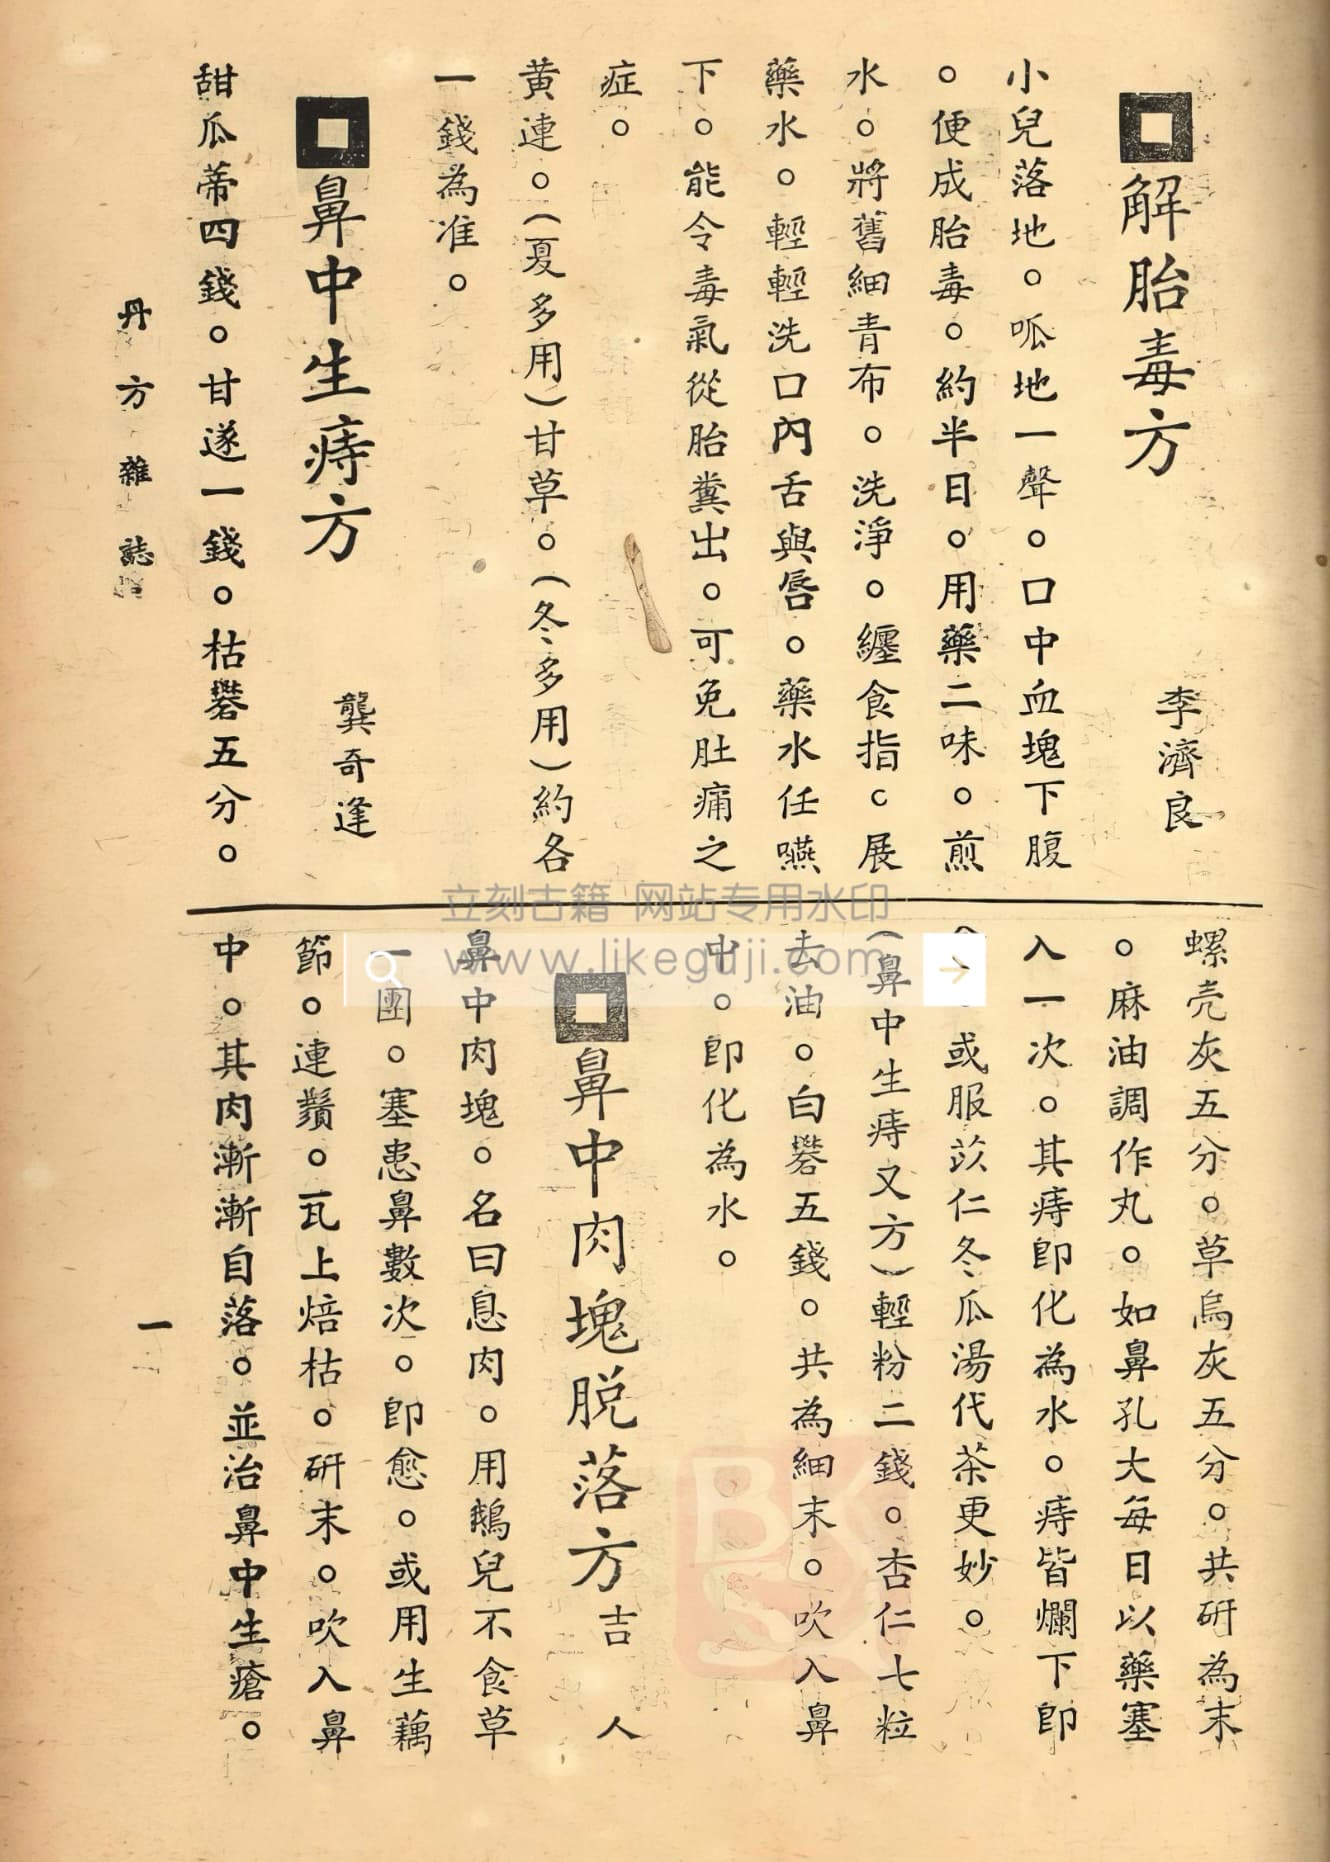 解胎毒方　李濟良
小兒落地。呱地一聲。口中血塊下腹
。便成胎毒。約半日。用藥二味。煎
水。將舊細青布。洗淨。纏食指。展
藥水。輕輕洗口內舌與唇。藥水任嚥
下。能令毒氣從胎糞出。可免肚痛之
症。
黃連。(夏多用)甘草。(冬多用)約各
一錢為准。
鼻中生痔方　龔奇逢
甜瓜蒂四錢。甘遂一錢。枯礬五分。
螺壳灰五分。草烏灰五分。共研為末
。麻油調作丸。如鼻孔大每日以藥塞
入一次。其痔即化為水。痔皆爛下即
或服苡仁冬瓜湯代茶更妙。
(鼻中生痔又方)輕粉二錢。杏仁七粒
去油。白礬五錢。共為細末。吹入鼻
中。即化為水。
鼻中肉塊脫落方　吉人
鼻中肉塊。名曰息肉。用鵝兒不食草
一團。塞患鼻數次。即愈。或用生藕
節。連鬚。瓦上焙枯。研末。吹入鼻
中。其肉漸漸自落。並治鼻中生瘡。
丹方雜誌
一
立刻古籍 网站专用水印
www.likeguji.com
BKS